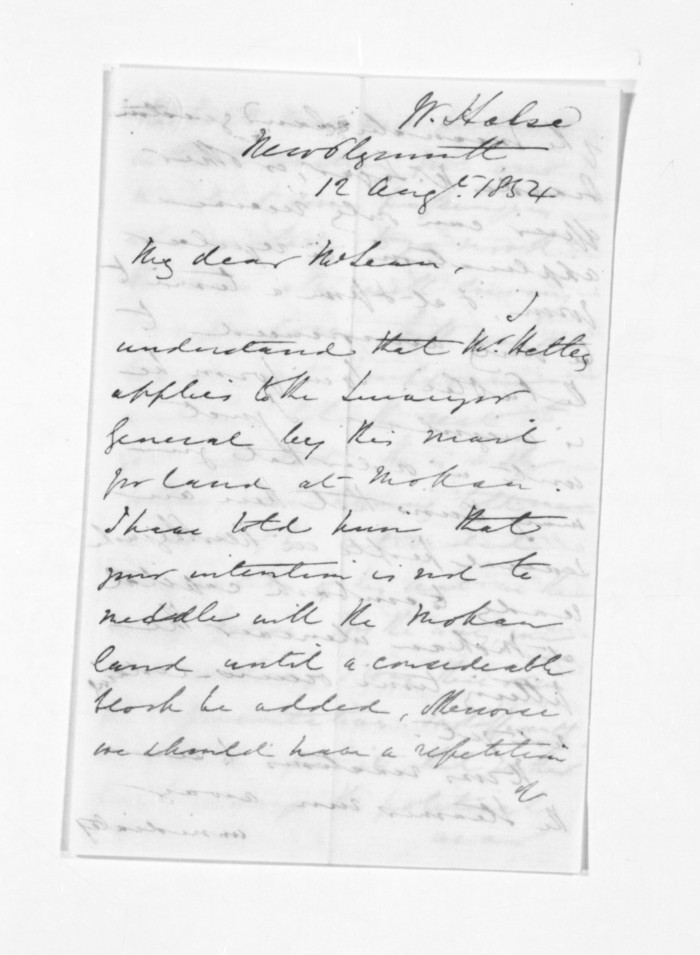 W. Halse
New Plymouth
12 Augt. 1854
My dear McLean,
I
understand that Mr. Hettley
applies to the Surveyor
General by this mail
for land at Mokau.
I have told him that
your intention is not to
meddle with the Mokau
land until a considerable
block be added, otherwise
we should have a repetition
of